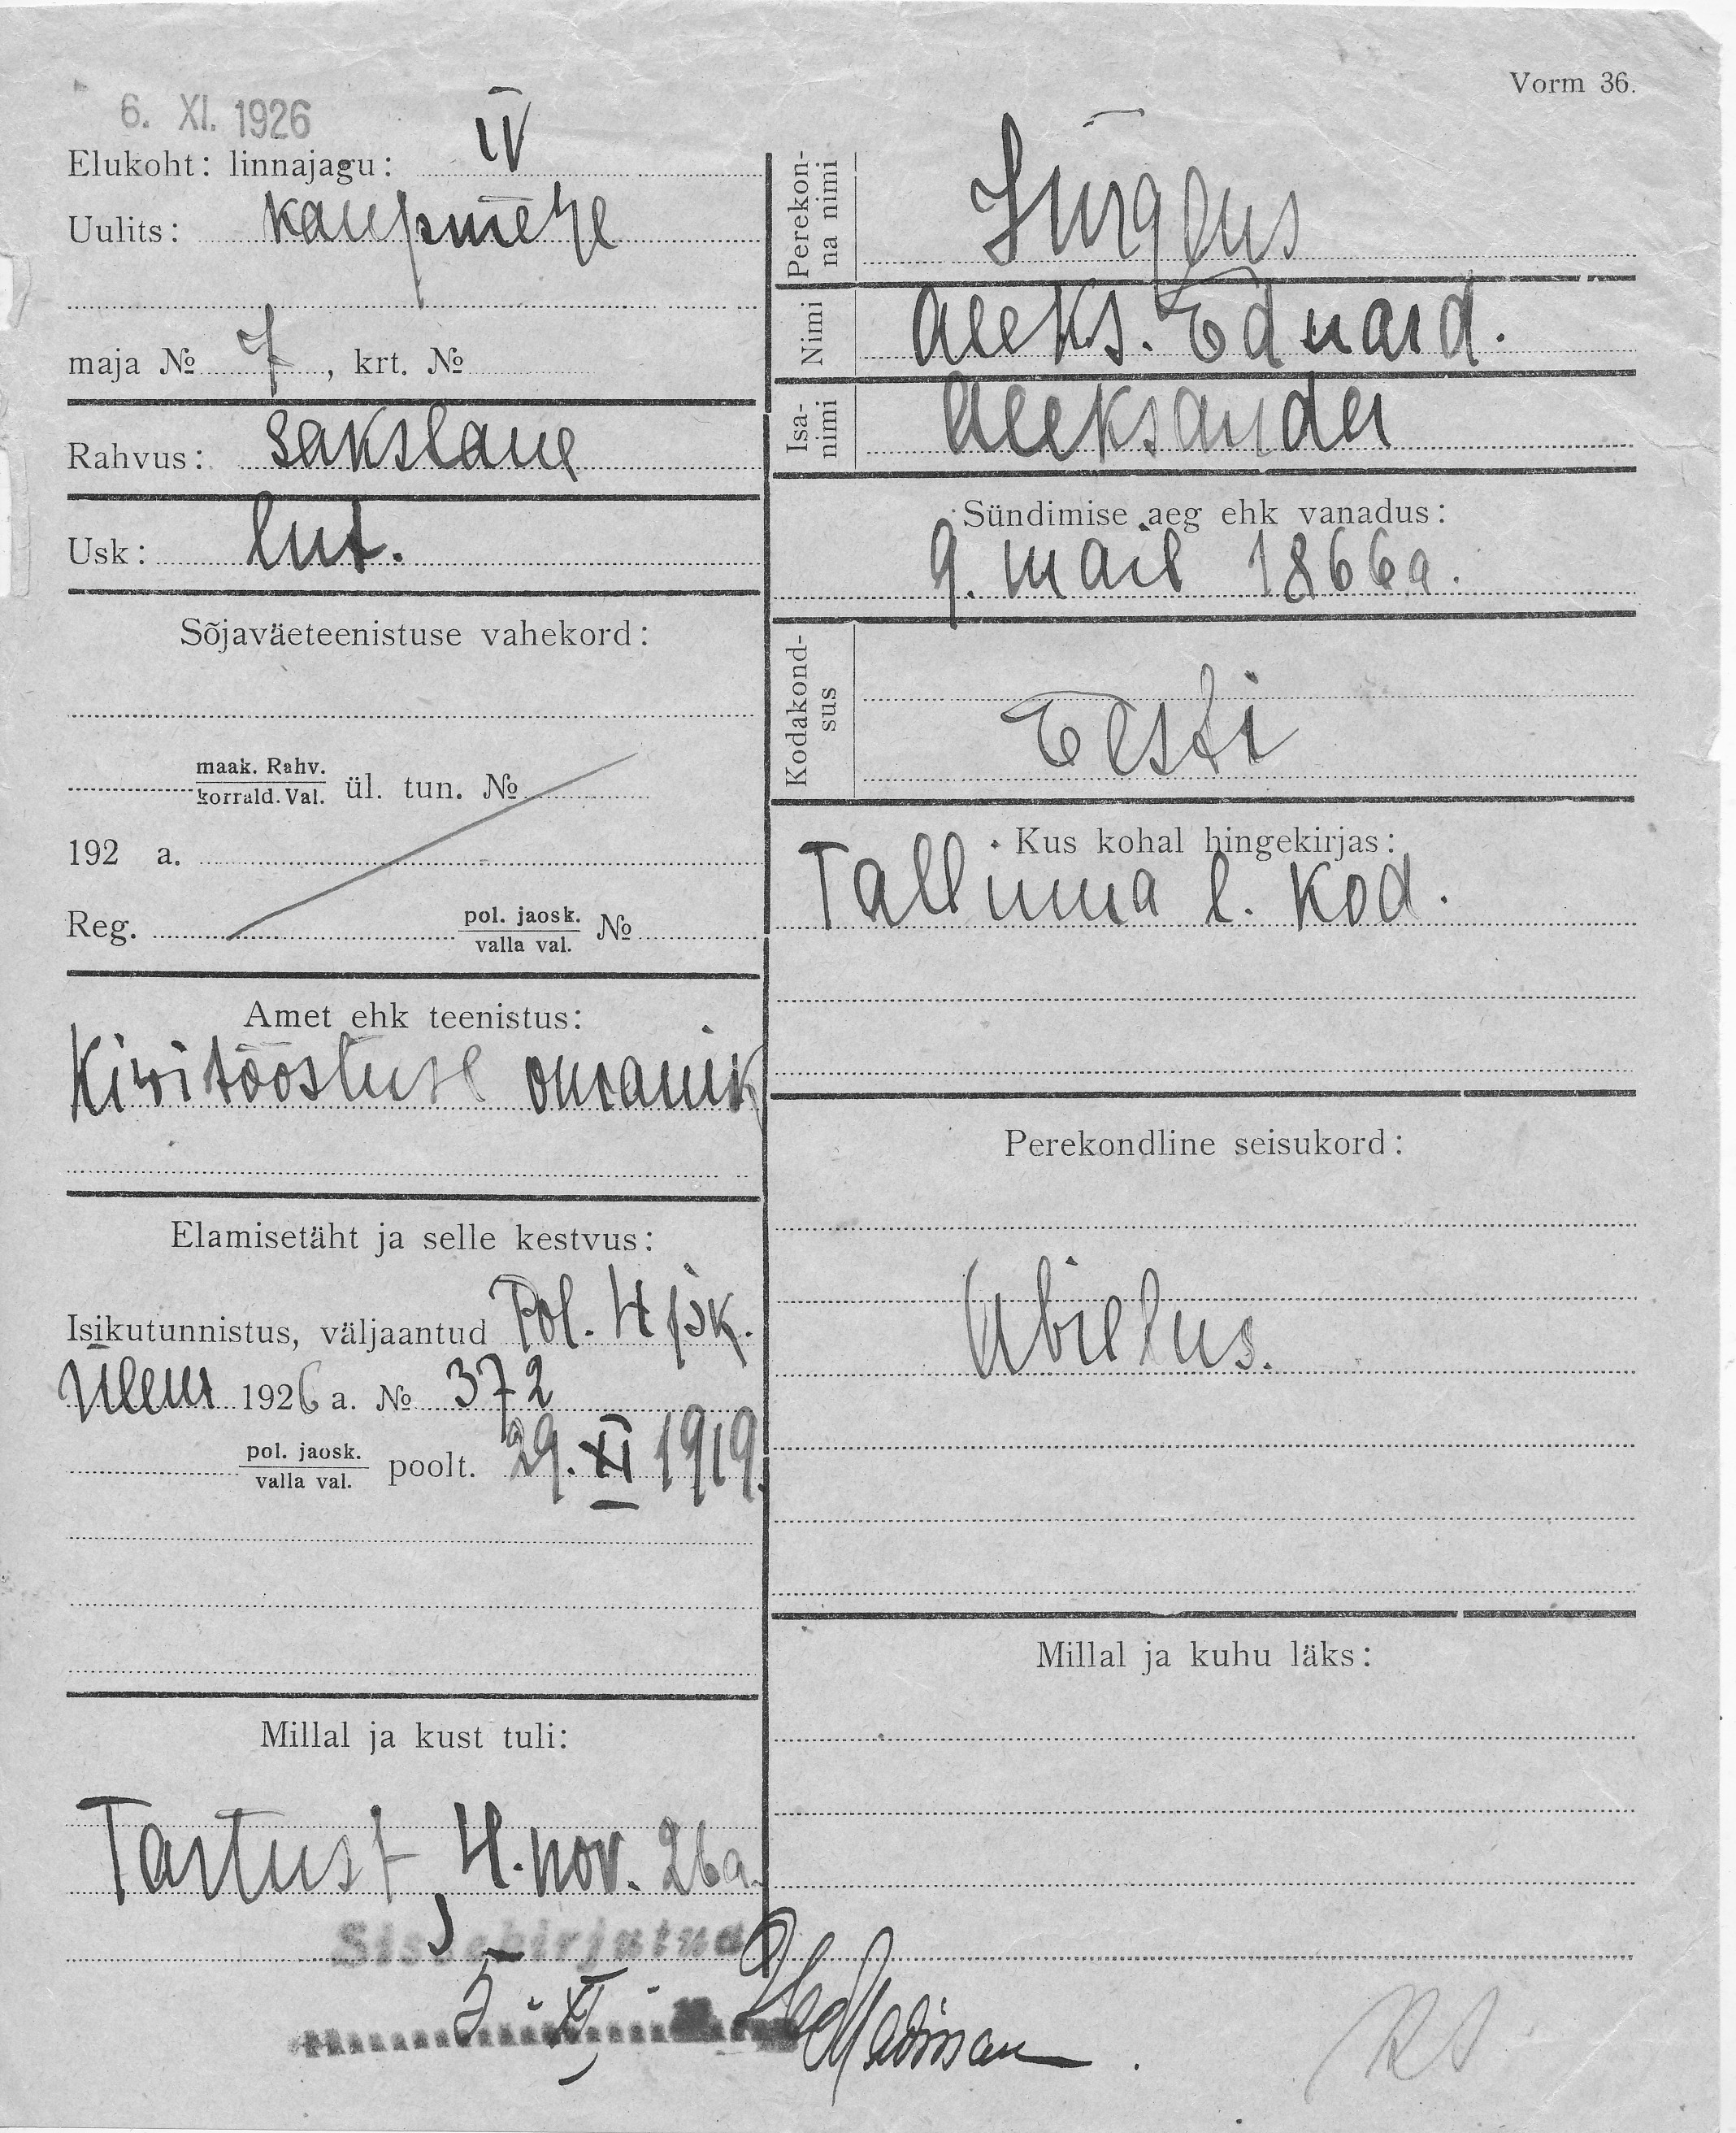 Vorm 36.
6. XI. 1926
Elukoht: linnajagu: IV
Uulits: Kaupmehe
maja № 7, krt. №
Rahvus: sakslane
Usk: lut.
Sõjaväeteenistuse vahekord:
maak. Rahv.
korrald. Val. ül. tun. №
192 a.
Reg. pol. jaosk.
valla val. №
Amet ehk teenistus:
Kivitööstuse omanik
Elamisetäht ja selle kestvus:
Isikutunnistus, väljaantud Pol. 4 jsk.
Ülem 1926 a. № 372
pol. jaosk.
valla val. poolt. 29. XI 1919.
Millal ja kust tuli:
Tartust, 4. nov. 26 a.
Sissekirjutud
5. XI
Perekon-
na nimi
Jürgens
Nimi
Aleks. Eduard.
Isa-
nimi
Aleksander
Sündimise aeg ehk vanadus:
9. mail 1866 a.
Kodakond-
sus
Eesti
Kus kohal hingekirjas:
Tallinna l. kod.
Perekondline seisukord:
Abielus.
Millal ja kuhu läks: